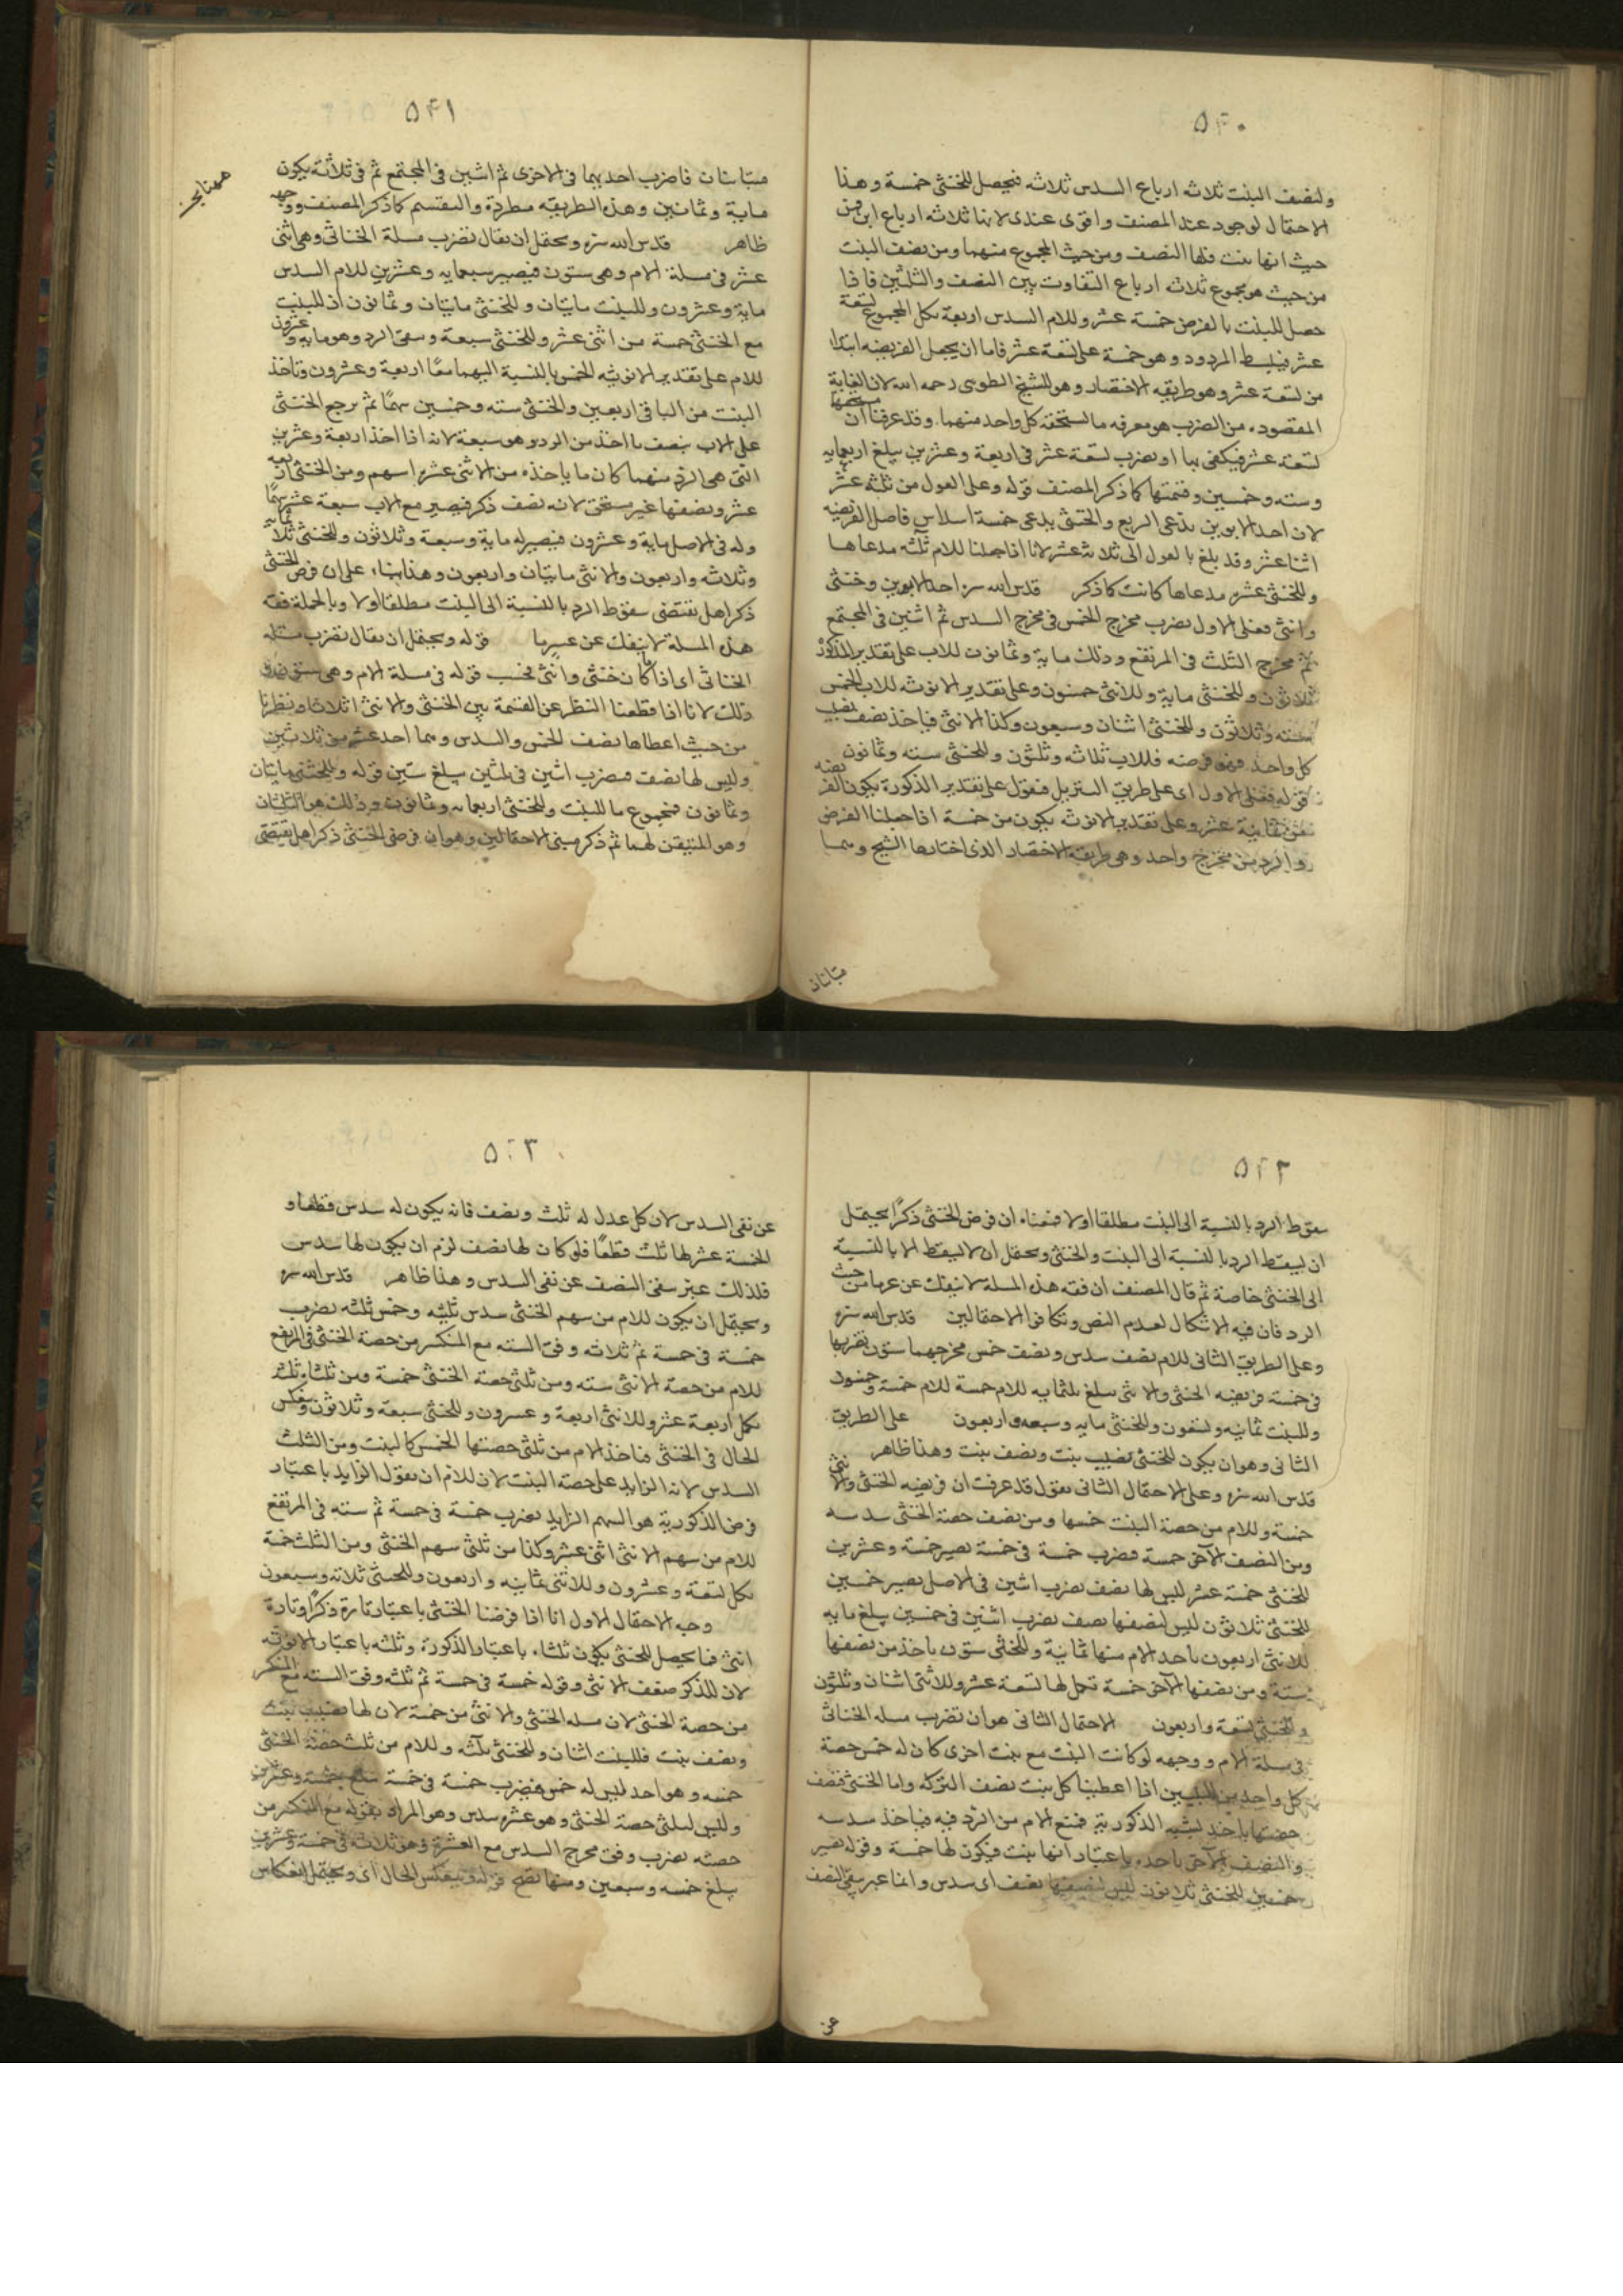 ۵۴۰
ولنصف البنت ثلاثه ارباع السدس ثلاثه فيحصل للخنثى خمسة وهذا
الاحتمال لوجود عند المصنف واقوى عندى لانها ثلاثه ارباع ابن فمن
حيث انها بنت فلها النصف ومن حيث المجموع منهما ومن نصف البنت
من حيث هو مجموع ثلاثه ارباع التفاوت بين النصف والثلثين فاذا
حصل للبنت بالفرض خمسة عشر وللام السدس اربعة بكل المجموع تسعة
عشر فيبسط المردود وهو خمسة على تسعة عشر فاما ان يجعل الفريضه ابتدا
من تسعة عشر وهو طريقه الاختصار وهو للشيخ الطوسى رحمه الله لان الغاية
المقصوده من الضرب هو معرفه ما يستحقه كل واحد منهما وقد عرفنا ان
تسعة عشر فيكفى بها او يضرب تسعة عشر فى اربعة وعشرين يبلغ اربعمايه
وسته وخمسين وقسمتها كما ذكر المصنف قوله وعلى العول من ثلثه عشر
لان احد الابوين يدعى الربع والخنثى يدعى خمسة اسداس فاصل الفريضه
اثنا عشر وقد بلغ بالعول الى ثلاثه عشر لانا اذا جعلنا للام ثلثه مدعاها
وللخنثى عشره مدعاها كانت كما ذكر قدس الله سره احد الابوين وخنثى
وانثى فعلى الاول يضرب مخرج الخمس فى مخرج السدس ثم اثنين فى المجتمع
ثم مخرج الثلث فى المرتفع وذلك ماية وثمانون للاب على تقدير الذكورة
ثلاثون وللخنثى ماية وللانثى خمسون وعلى تقدير الانوثه للاب الخمس
سته وثلاثون وللخنثى اثنان وسبعون وكذا الانثى فياخذ نصف نصيب
كل واحد فهو فرضه فللاب ثلاثه وثلثون وللخنثى سته وثمانون
قوله فعلى الاول اى على طريق التنزيل فنقول على تقدير الذكورة يكون الفريضه
من ثمانية عشر وعلى تقدير الانوثه يكون من خمسة اذا جعلنا الفرض
والرد من مخرج واحد وهو طريقة الاختصار الذى اختارها الشيخ وهما
متباينان
۵۴۱
متباينان فاضرب احديهما فى الاخرى ثم اثنين فى المجتمع ثم فى ثلاثة يكون
ماية وثمانين وهذه الطريقه مطردة والتقسيم كما ذكر المصنف ووجهه
ظاهر قدس الله سره ويحتمل ان يقال نضرب مسلة الخناثى وهى اثنى
عشر فى مسلة الام وهى ستون فيصير سبعمايه وعشرين للام السدس
ماية وعشرون وللبنت مايتان وللخنثى مايتان وثمانون اذ للبنت
مع الخنثى خمسة من اثنى عشر وللخنثى سبعة وسقى الرد وهو مايه وعشرون
للام على تقدير الانوثيه الخمس بالنسبة اليهما معًا اربعة وعشرون وتاخذ
البنت من الباقى اربعين والخنثى سته وخمسين سهمًا ثم يرجع الخنثى
على الاب بنصف ما اخذ من الرد وهو سبعة لانه اذا اخذ اربعة وعشرين
التى هى الرد منهما كان ما ياخذه من الانثى عشرا سهم ومن الخنثى اربعه
عشر ونصفها غير مستحق لانه نصف ذكر فيصير مع الاب سبعة عشر سهمًا
وله فى الاصل ماية وعشرون فيصير له ماية وسبعة وثلاثون وللخنثى ثلثمايه
وثلاثه واربعون والانثى مايتان واربعون وهذا بناء على ان فرض الخنثى
ذكرا هل يقتضى سقوط الرد بالنسبة الى البنت مطلقا اولا وبالجملة فقه
هذه المسلة لا ينفك عن عسرما قوله ويحتمل ان يقال نضرب مسلة
الخناثى اى اذا كان خنثى وانثى فحسب قوله فى مسلة الام وهى ستون
وذلك لانا اذا قطعنا النظر عن القسمة بين الخنثى والانثى اثلاثا ونظرنا
من حيث اعطاها نصف الخمس والسدس وهما احد عشر من ثلاثين
وليس لها نصف فضرب اثنين فى ثلثين يبلغ ستين قوله وللخنثى مايتان
وثمانون فمجموع ما للبنت وللخنثى اربعمايه وثمانون وذلك هو الثلثان
وهو المتيقن لهما ثم ذكر مبنى الاحتمالين وهو ان فرض الخنثى ذكرا هل يقتضى
۵۴۲
سقوط الرد بالنسبة الى البنت مطلقا اولا فمعناه ان فرض الخنثى ذكرًا يحتمل
ان يسقط الرد بالنسبة الى البنت والخنثى ويحتمل ان لا يسقط الا بالنسبة
الى الخنثى خاصة ثم قال المصنف ان فقه هذه المسلة لا ينفك عن عرما من حيث
الرد فان فيه الاشكال لعدم النص وتكافى الاحتمالين قدس الله سره
وعلى الطريق الثانى للام نصف سدس ونصف خمس مخرجهما ستون تضربها
فى خمسة فريضه الخنثى والانثى يبلغ ثلثمايه للام خمسة للام خمسة وخمسون
وللبنت ثمانيه وتسعون وللخنثى مايه وسبعه واربعون على الطريق
الثانى وهو ان يكون للخنثى نصيب بنت ونصف بنت وهذا ظاهر
قدس الله سره وعلى الاحتمال الثانى نقول قد عرفت ان فريضه الخنثى والانثى
خمسة وللام من حصة البنت خمسها ومن نصف حصة الخنثى سدسه
ومن النصف الآخر خمسة فضرب خمسة فى خمسة يصير خمسة وعشرين
للخنثى خمسة عشر ليس لها نصف يضرب اثنين فى الاصل يصير خمسين
للخنثى ثلاثون ليس لنصفها نصف يضرب اثنين فى خمسين يبلغ مايه
للانثى اربعون ياخذ الام منها ثمانية وللخنثى ستون ياخذ من نصفها
سته ومن نصفها الآخر خمسة تكمل لها تسعة عشر وللانثى اثنان وثلثون
والخنثى تسعة واربعون الاحتمال الثانى هو ان تضرب مسله الخناثى
فى مسلة الام ووجهه لو كانت البنت مع بنت اخرى كان له خمس حصة
كل واحد من البنتين اذا اعطينا كل بنت نصف التركه واما الخنثى فنصف
حصتها ياخذ بشبه الذكورية فتمنع الام من الرد فيه فياخذ سدسه
والنصف الآخر ياخذه باعتبار انها بنت فيكون لها خمسة وقوله يصير
خمسين للخنثى ثلاثون ليس لنصفها نصف اى سدس وانما عبر بنفى النصف
عن
۵۴۳
عن نفى السدس لان كل عدل له ثلث ونصف فانه يكون له سدس قطعا و
الخمسة عشر لها ثلث قطعًا فلو كان لها نصف لزم ان يكون لها سدس
فلذلك عبر بنفى النصف عن نفى السدس وهذا ظاهر قدس الله سره
ويحتمل ان يكون للام من سهم الخنثى سدس ثلثيه وخمس ثلثه يضرب
خمسة فى خمسة ثم ثلاثه وفق السته مع المنكسر من حصة الخنثى فى المرتفع
للام من حصة الانثى سته ومن ثلثى حصة الخنثى خمسة ومن ثلثها ثلثه
بكمل اربعة عشر وللانثى اربعة وعشرون وللخنثى سبعة وثلاثون وينعكس
الحال فى الخنثى فتاخذ الام من ثلثى حصتها الخمس كالبنت ومن الثلث
السدس لانه الزايد على حصة البنت لان للام ان تقول الزايد باعتبار
فرض الذكورية هو السهم الزايد يضرب خمسة فى خمسة ثم سته فى المرتفع
للام من سهم الانثى اثنى عشر وكذا من ثلثى سهم الخنثى ومن الثلث خمسة
بكل تسعة وعشرون وللانثى ثمانيه واربعون وللخنثى ثلاثه وسبعون
وجه الاحتمال الاول انا اذا فرضنا الخنثى باعتبار تارة ذكرًا وتارة
انثى فما يحصل للخنثى يكون ثلثاه باعتبار الذكورة وثلثه باعتبار الانوثه
لان للذكر ضعف الانثى وقوله خمسة فى خمسة ثم ثلثه وفق السته مع المنكسر
من حصة الخنثى لان مسله الخنثى والانثى من خمسة لان لها نصيب بنت
ونصف بنت فللبنت اثنان وللخنثى ثلثه وللام من ثلث حصة الخنثى
خمسه وهو احد ليس له خمس فضرب خمسة فى خمسة يبلغ خمسة وعشرين
وليس لثلثى حصة الخنثى وهو عشره سدس وهو المراد بقوله مع المنكسر من
حصته يضرب وفق مخرج السدس مع العشرة وهو ثلاثه فى خمسة وعشرين
يبلغ خمسه وسبعين ومنها تصح قوله وينعكس الحال اى ويحتمل انعكاس